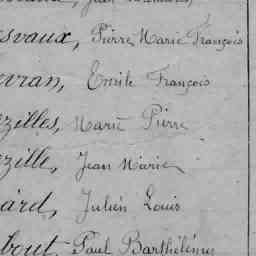 svaux, Pierre Marie François
vran, Emile François
zilles, Marie Pierre
zille, Jean Marie
ard, Julien Louis
bout, Paul Barthélémy